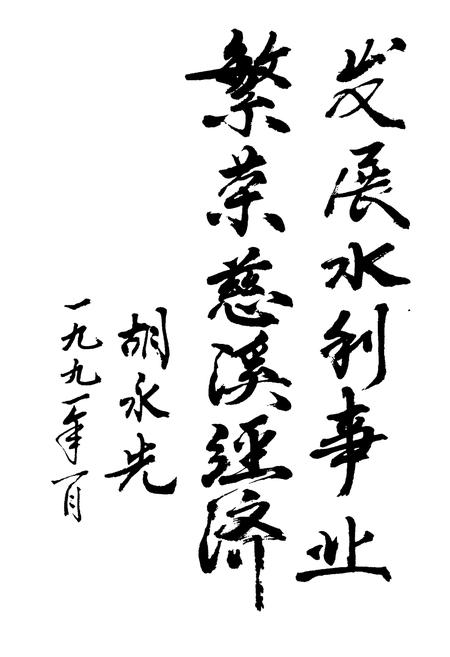 发展水利事业
繁荣慈溪经济
胡永先
一九九一年一月